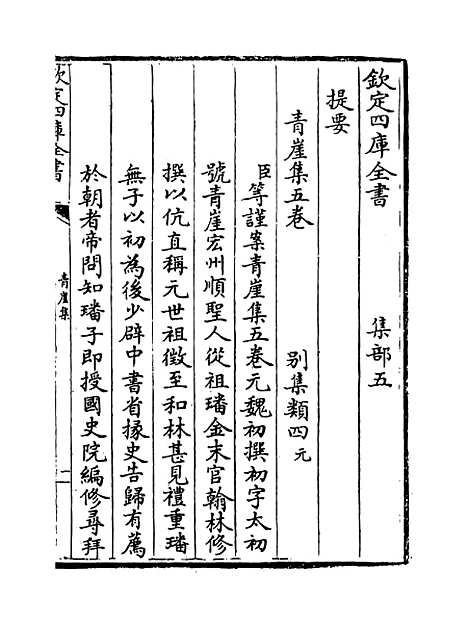 欽定四庫全書 集部五
提要
青崖集五卷 別集類四元
臣等謹案青崖集五卷元魏初撰初字太初
號青崖宏州順聖人從祖璠金末官翰林修
撰以伉直稱元世祖徴至和林甚見禮重璠
無子以初為後少辟中書省掾史告歸有薦
於朝者帝問知璠子即授國史院編修尋拜
欽定四庫全書
青崖集
一